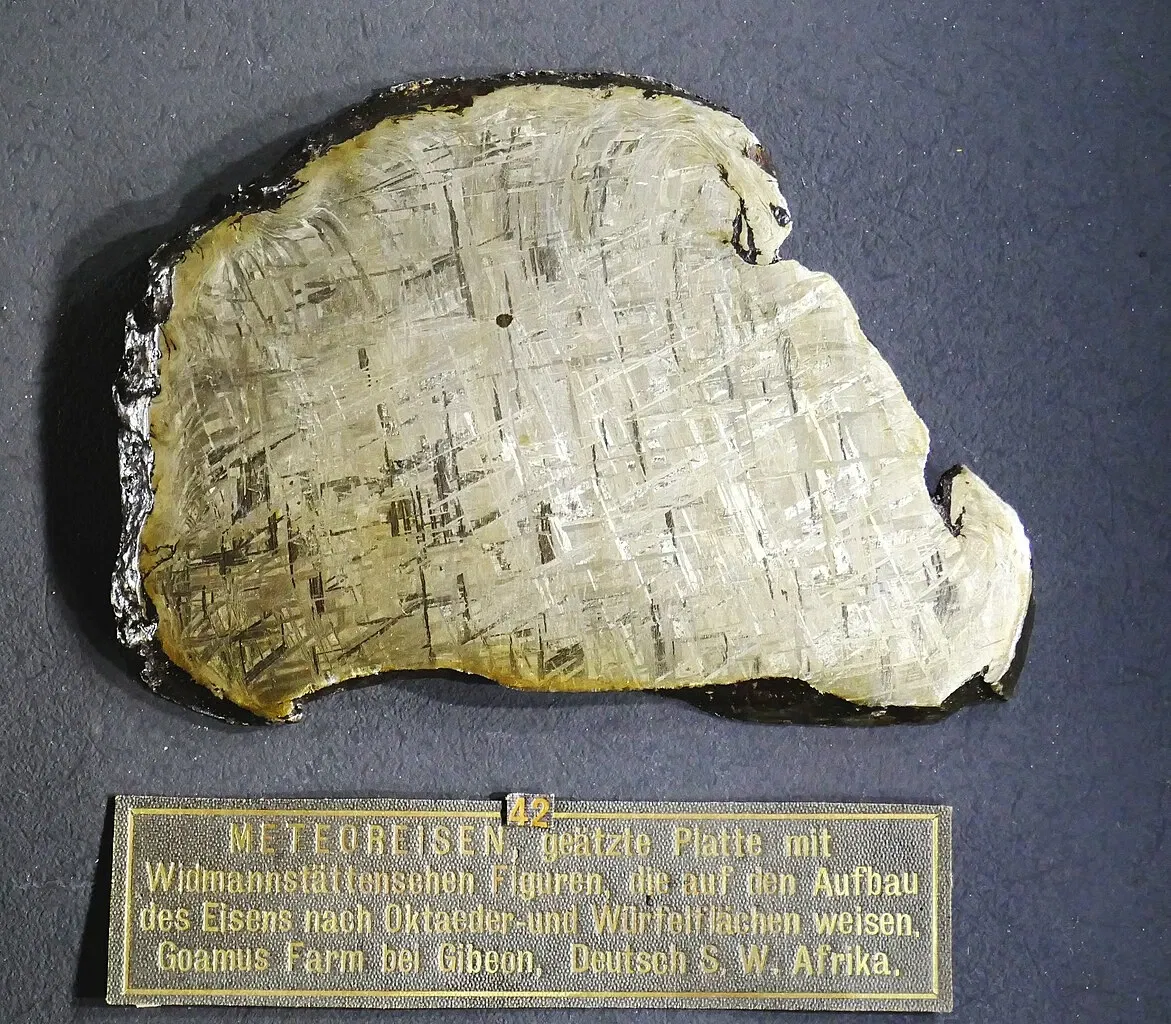 42
METEOREISEN, geätzte Platte mit
Widmannstättenschen Figuren, die auf den Aufbau
des Eisens nach Oktaeder-und Würfelflächen weisen.
Goamus Farm bei Gibeon, Deutsch S. W. Afrika.